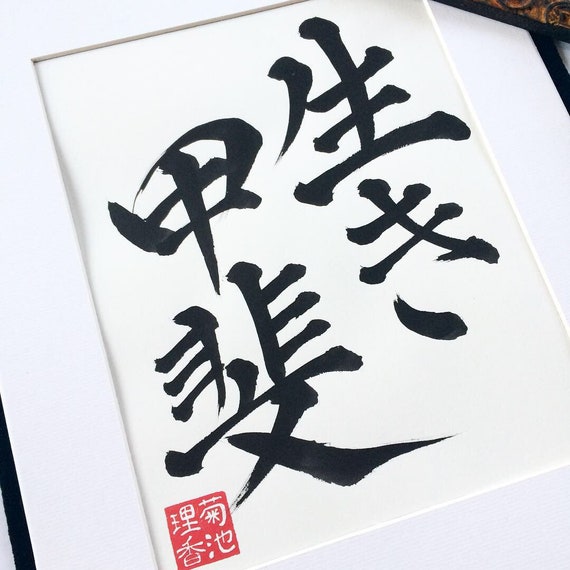 生き
甲斐
菊池
理香